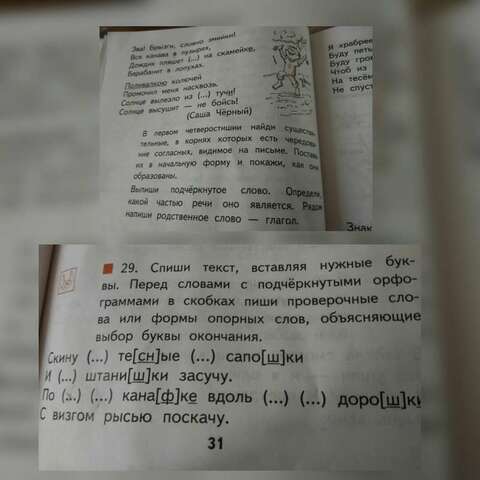 Эва! Брызги, словно змейки!
Вся канава в пузырях,
Дождик пляшет (...) на скамейке,
Барабанит в лопухах.
Поливалкою колючей
Промочил меня насквозь.
Солнце вылезло из (...) тучи!
Солнце высушит — не бойсь!
(Саша Чёрный)
В первом четверостишии найди существи-
тельные, в корнях которых есть чередова-
ние согласных, видимое на письме. Поставь
их в начальную форму и покажи, как они
образованы.
Выпиши подчёркнутое слово. Определи,
какой частью речи оно является. Рядом
напиши родственное слово — глагол.
Я храбрее
Буду петь
Буду гром
Чтоб из
На тесём
Не спуст
Знак
29. Спиши текст, вставляя нужные бук-
вы. Перед словами с подчёркнутыми орфо-
граммами в скобках пиши проверочные сло-
ва или формы опорных слов, объясняющие
выбор буквы окончания.
Скину (...) те[сн]ые (...) сапо[ш]ки
И (...) штани[ш]ки засучу.
По (...) (...) кана[ф]ке вдоль (...) (...) доро[ш]ки
С визгом рысью поскачу.
31